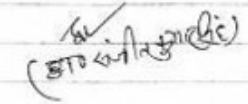 (डा० संजीत कुमार सिंह)